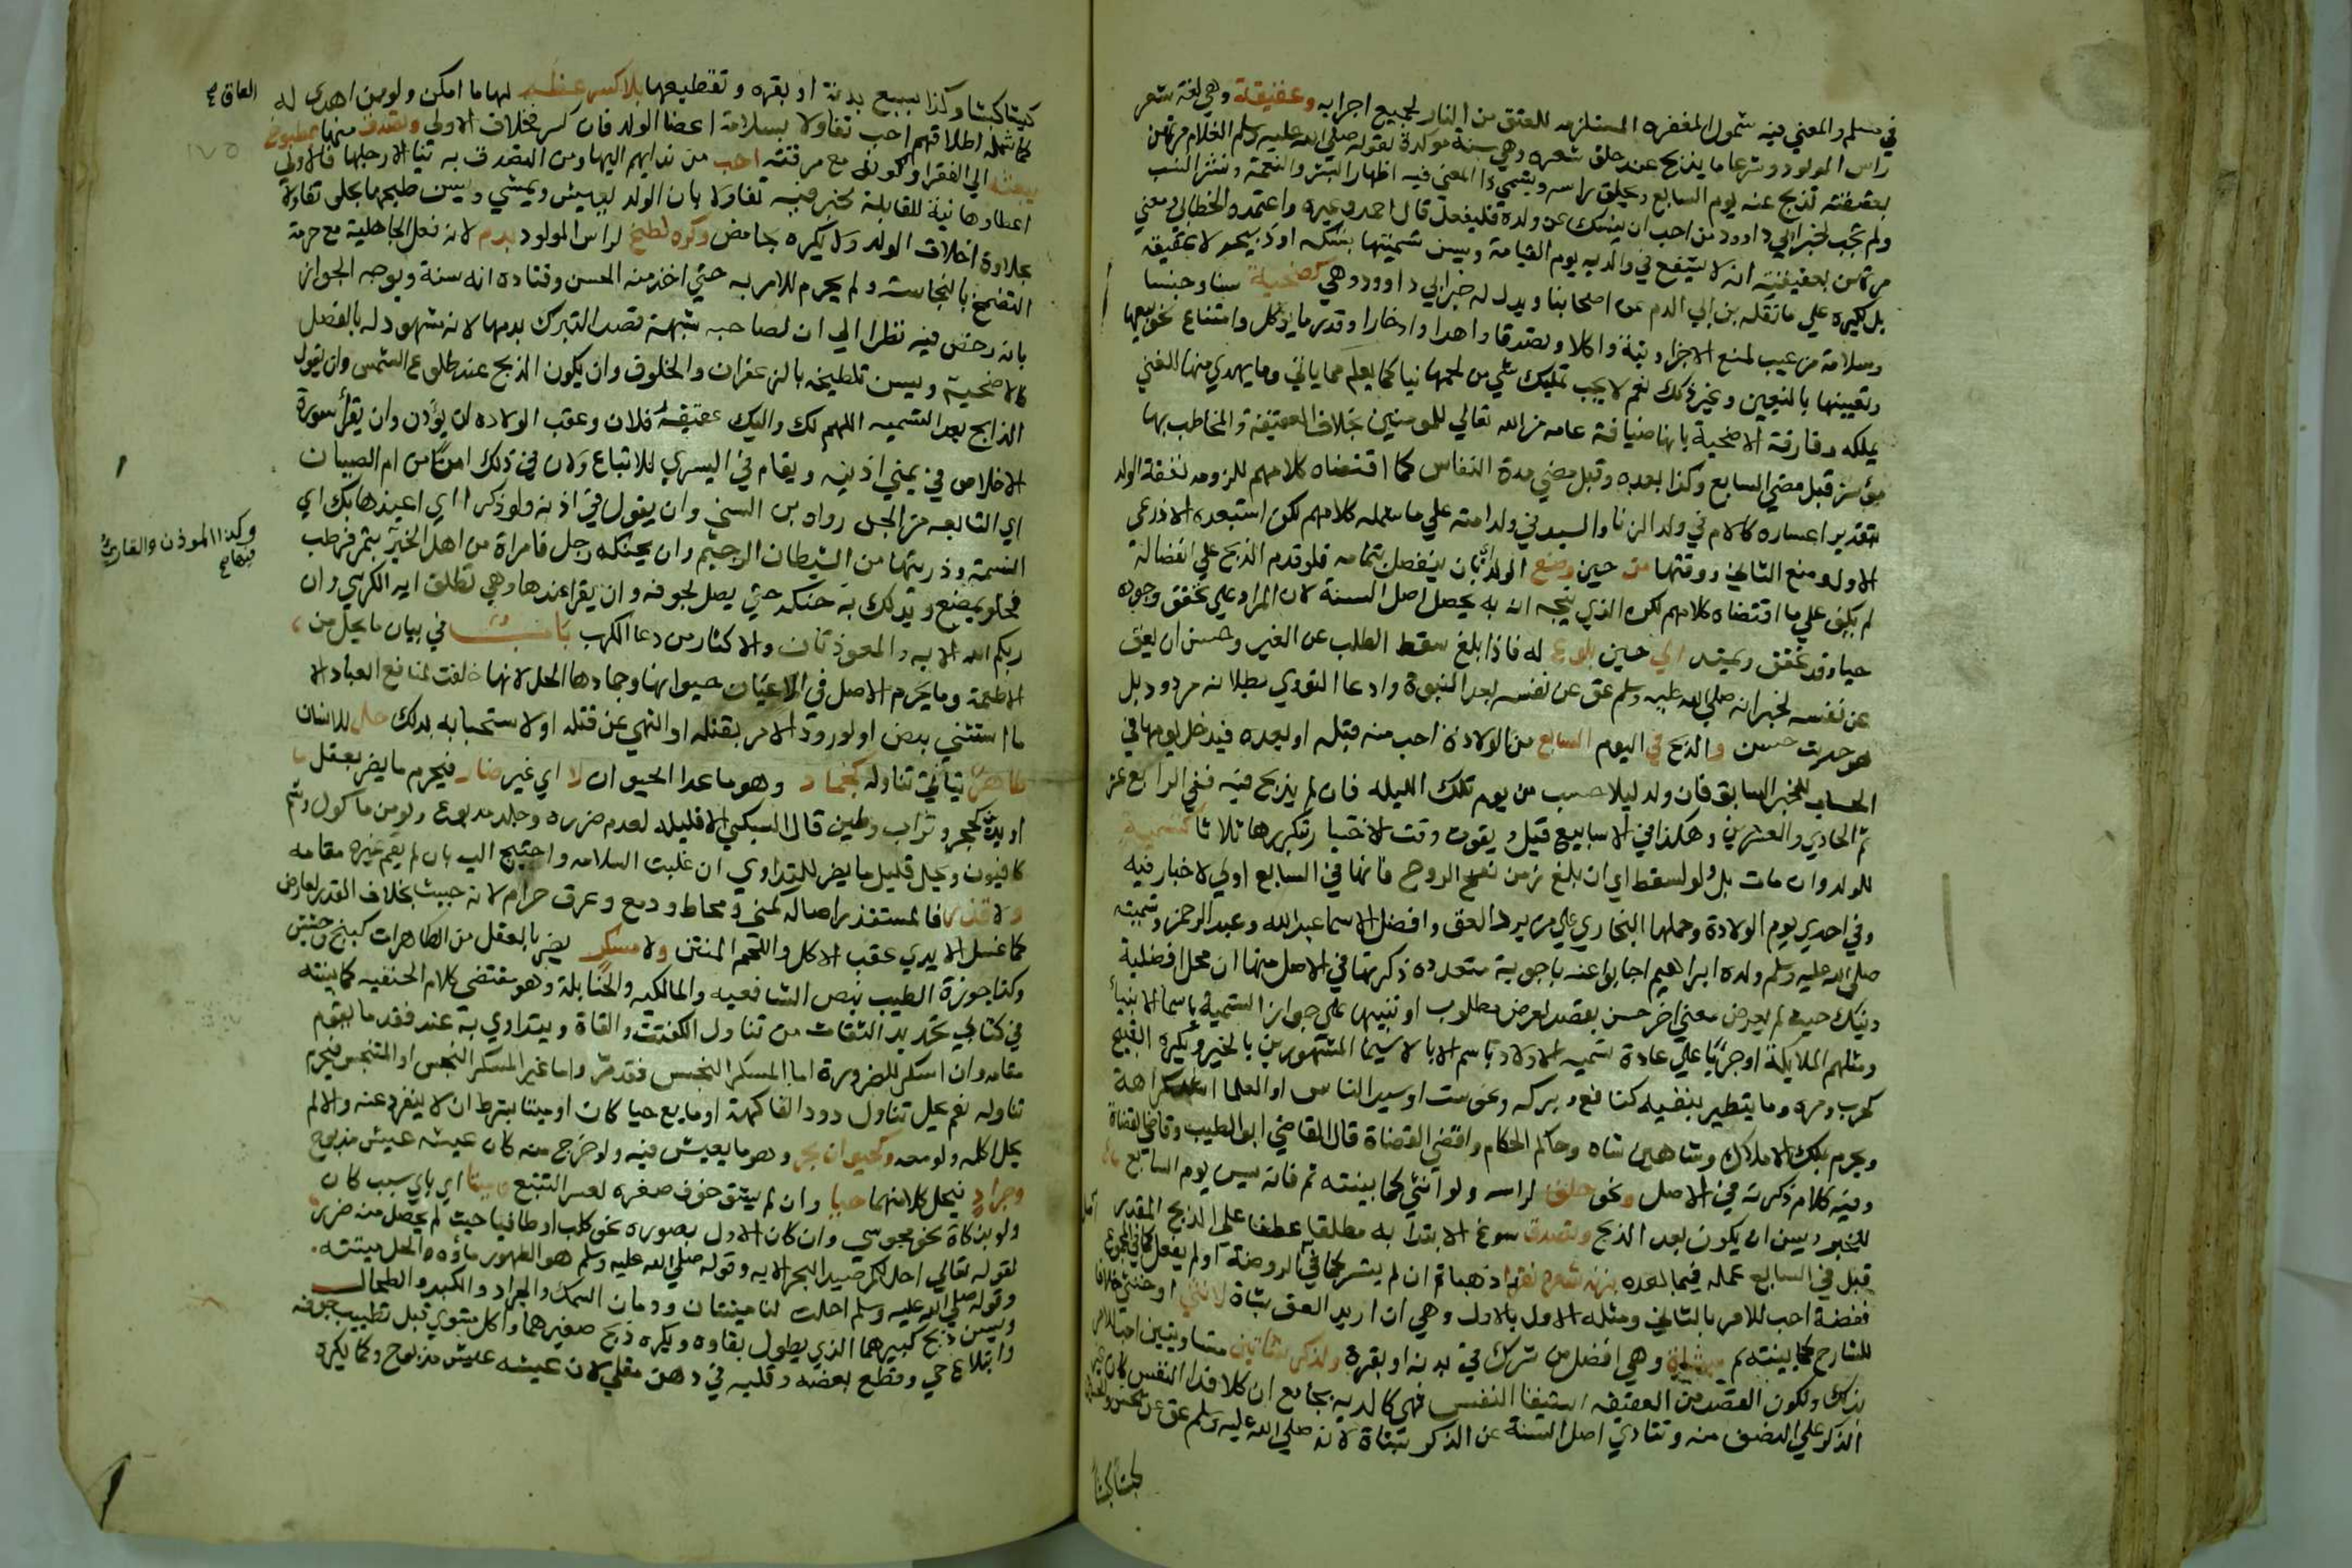 في مسلم والمعني فيه شمول المغفره المستلزمه للعتق من النار لجميع اجزايه وعقيقة وهي لغة شعر
راس المولود وشرعا ما يذبح عند حلق شعره وهي سنة موكدة لقوله صلي الله عليه وسلم الغلام مرتهن
بعقيقته تذبح عنه يوم السابع ويحلق راسه ويسمي والمعني فيه اظهار البشر والنعمة ونشر النسب
ولم تجب لخبر ابي داوود من احب ان ينسك عن ولده فليفعل قال احمد وغيره واعتمده الخطابي ومعني
مرتهن بعقيقته انه لا يشفع في والديه يوم القيامة ويسن تسميتها نسيكه او ذبيحه لا عقيقه
بل يكره علي ما نقله بن ابي الدم عن اصحابنا ويدل له خبر ابي داوود وهي كضحية سنا وجنسا
وسلامة من عيب لمنع الاجزا ونية واكلا وتصدقا واهدا وادخارا وقدر ما يوكل وامتناع نحو بيعها
وتعيينها بالتعيين وغير ذلك نعم لا يجب تمليك شي من لحمها نيا كما يعلم مما ياتي وما يهدي منها للغني
يملكه وفارقة الاضحية بانها ضيافة عامه من الله تعالي للمومنين بخلاف العقيقة والمخاطب بها
موسر قبل مضي السابع وكذا بعده وقبل مضي مدة النفاس كما اقتضاه كلامهم للزومه نفقة الولد
بتقدير اعساره كالام في ولد الزنا والسيد في ولد امته علي ما شمله كلامهم لكن استبعده الاذرعي
الاول ومنع الثاني ووقتها من حين وضع الولد بان ينفصل بتمامه فلو قدم الذبح علي انفصاله
لم يكف علي ما اقتضاه كلامهم لكن الذي يتجه انه به يحصل اصل السنة لان المدار علي تحقق وجوده
حيا وقد تحقق ويمتد الي حين بلوغ له فاذا بلغ سقط الطلب عن الغير وحسن ان يعق
عن نفسه لخبر انه صلي الله عليه وسلم عق عن نفسه بعد النبوة وادعا النووي بطلانه مردود بل
هو حديث حسن والذبح في اليوم السابع من الولادة احب منه قبله او بعده فيدخل يومها في
الحساب للخبر السابق فان ولد ليلا حسب من يوم تلك الليله فان لم يذبح فيه ففي الرابع عشر
ثم الحادي والعشرين وهكذا في الاسابيع قيل ويفوت وقت الاختيار بتكررها ثلاثا كتسمية
للولد وان مات بل ولو لسقط اي ان بلغ زمن نفخ الروح فانها في السابع اولي لاخبار فيه
وفي اخري يوم الولادة وحملها البخاري علي من يرد العق وافضل الاسما عبد الله وعبد الرحمن وتسميته
صلي الله عليه وسلم ولده ابراهيم اجابوا عنه باجوبة متعدده ذكرتها في الاصل منها ان محل افضلية
ذينك حيث لم يعرض معني اخر حسن بقصد لعرض مطلوب او تنبيها علي جواز التسمية باسما الانبيا
ومثلهم الملايكة او جريا علي عادة تسميه الاولاد باسم الابا لا سيما المشهورين بالخير ويكره القبيح
كحرب ومره وما يتطير بنفيه كنافع وبركه ونحو ست او سيد الناس او العلما اشد كراهة
ويحرم بملك الاملاك وشاهين شاه وحاكم الحكام واقضي القضاة قال القاضي ابو الطيب وقاضي القضاة
وفيه كلام ذكرته في الاصل ونحو حلق لراسه ولو انثي كما بينته ثم فانه يسن يوم السابع
للخبر ويسن ان يكون بعد الذبح وتصدق سوغ الابتدا به مطلقا عطفا علي الذبح المقدر
قبل في السابع عمله فيما بعده بزنه شعره نقدا ذهبا ثم ان لم يتيسر كما في الروضة او لم يفعل كما في المجموع
ففضة احب للامر بالثاني ومثله الاول بالاول وهي ان اريد العق بشاة لانثي او خنثي خلافا
للشارح كما بينته ثم بشاة وهي افضل من شرك في بدنه او بقرة ولذكر شاتين متساويتين احب للامر
بذلك ولكون القصد من العقيقه استبقا النفس فهي كالدية بجامع ان كلا فدا النفس كان
الذكر علي النصف منه وتتادي اصل السنة عن الذكر بشاة لانه صلي الله عليه وسلم عق عن الحسن والحسين
كبشا كبشا
كبشا كبشا وكذا بسبع بدنة او بقره وتقطيعها بلا كسر عظم لها ما امكن ولو من اهدي له
كما شمله اطلاقهم احب تفاولا بسلامة اعضا الولد فان كسر فخلاف الاولي وتصدق منها بمطبوخ
يبعثه الي الفقرا وكونه مع مرقته احب من ندايهم اليها ومن التصدق به نيا الا رجلها فالاولي
اعطاوها نية للقابلة لخبر فيه تفاولا بان الولد يعيش ويمشي ويسن طبخها بحلو تفاولا
بحلاوة اخلاق الولد ولا يكره بحامض وكره لطخ لراس المولود بدم لانه فعل الجاهلية مع حرمة
التضمخ بالنجاسة ولم يحرم للامر به حتي اخذ منه الحسن وقتاده انه سنة ويوجه الجواز
بانه رخص فيه نظرا الي ان لصاحبه شبهة قصد التبرك بدمها لانه مشهود له بالفضل
كالاضحية ويسن تلطيخه بالزعفران والخلوق وان يكون الذبح عند طلوع الشمس وان يقول
الذابح بعد التسميه اللهم لك واليك عقيقة فلان وعقب الولاده ان يوذن وان يقرا سورة
الاخلاص في يمني اذنيه ويقام في اليسري للاتباع ولان في ذلك امنا من ام الصبيان
اي التابعه من الجن رواه بن السني وان يقول في اذنه ولو ذكرا اي اعيذها بك اي
النسمة وذريتها من الشيطان الرجيم وان يحنكه رجل فامراة من اهل الخير بتمر فرطب
فحلو يمضغ ويدلك به حنكه حتي يصل لجوفه وان يقرا عندها وهي تطلق ايه الكرسي وان
ربكم الله الايه والمعوذتان والاكثار من دعا الكرب باب في بيان ما يحل من
الاطعمة وما يحرم الاصل في الاعيان حيوانها وجمادها الحل لانها خلقت لمنافع العباد الا
ما استثني بنص او لورود الامر بقتله او النهي عن قتله او لاستخباثه بذلك حل للانسان
طاهر يتاتي تناوله كجماد وهو ما عدا الحيوان لا اي غير ضار فيحرم ما يضر بعقل
او بدن كحجر وتراب وطين قال السبكي الا قليله لعدم ضرره وجلد مدبوغ ولو من ماكول وسم
كافيون ويحل قليل ما يضر للتداوي ان غلبت السلامه واحتيج اليه بان لم يقم غيره مقامه
ولا قذر فالمستقذر اصاله كمني ومخاط ودمع وعرق حرام لانه خبيث بخلاف القذر لعارض
كما غسل الايدي عقب الاكل واللحم المنتن ولا مسكر يضر بالعقل من الطاهرات كبنج وحشيش
وكذا جوزة الطيب بنص الشافعيه والمالكيه والحنابلة وهو مقتضي كلام الحنفيه كما بينته
في كتابي تحذير الثقات من تناول الكفتة والقاة ويتداوي به عند فقد ما يقوم
مقامه وان اسكر للضرورة اما المسكر النجس فقد مر واما غير المسكر النجس او المتنجس فيحرم
تناوله نعم يحل تناول دود الفاكهة او مايع حيا كان او ميتا بشرط ان لا ينفرد عنه والا لم
يحل اكله ولو معه وكحيوان بحر وهو ما يعيش فيه ولو خرج منه كان عيشه عيش مذبوح
وجراد فيحل كلا منهما حيا وان لم يشق جوف صغره لعسر التتبع وميتا اي باي سبب كان
ولو بذكاة نحو مجوسي وان كان الاول بصوره نحو كلب او طافيا حيث لم يحصل منه ضرر
لقوله تعالي احل لكم صيد البحر الايه وقوله صلي الله عليه وسلم هو الطهور ماؤه الحل ميتته
وقوله صلي الله عليه وسلم احلت لنا ميتتان ودمان السمك والجراد والكبد والطحال
ويسن ذبح كبيرهما الذي يطول بقاوه ويكره ذبح صغيرهما واكل مشوي قبل تطييب جوفه
وابتلاع حي وقطع بعضه وقليه في دهن مغلي لان عيشه عيش مذبوح وكما يكره
العاق صح
١٧٥
وكذا الموذن والقاري فيهما صح